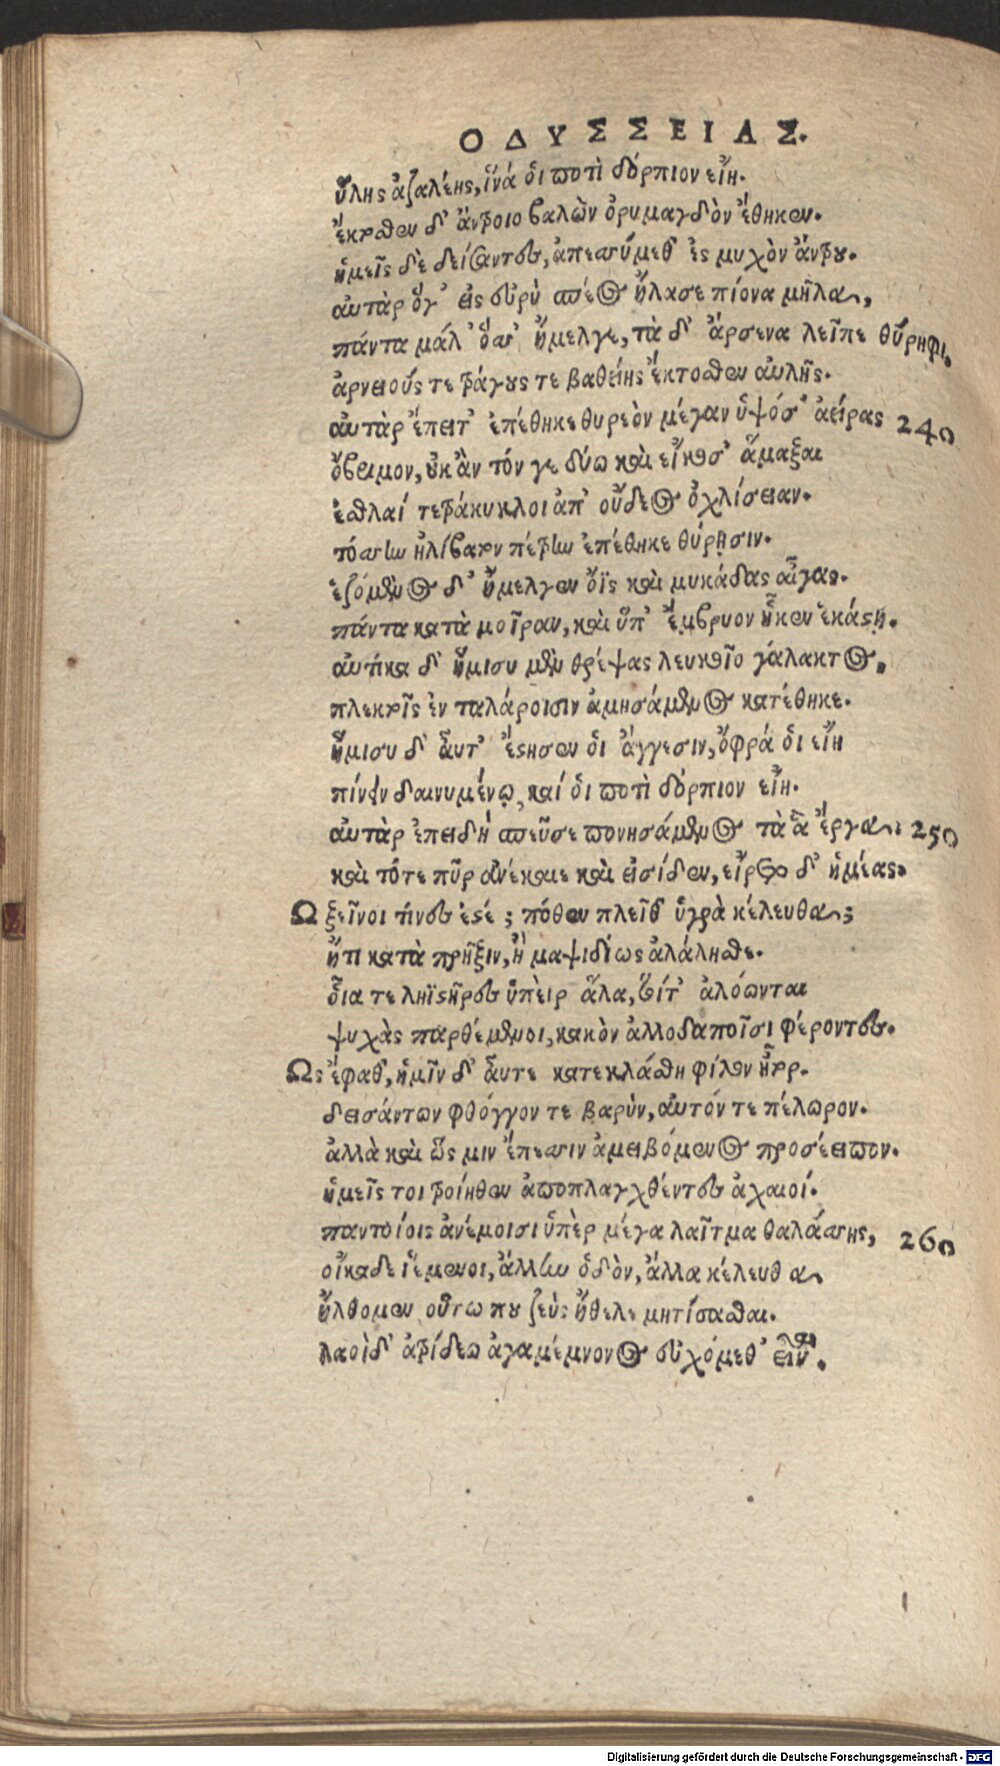 ΟΔΥΣΣΕΙΑΣ.
ὕλης ἀζαλέης, ἵνά ὁι ποτὶ δόρπιον εἴη.
ἔκτοσθεν δ' ἄντροιο βαλὼν ὀρυμαγδὸν ἔθηκεν.
ἡμεῖς δὲ δείσαντες, ἀπεσσύμεθ' ἐς μυχὸν ἄντρου.
αὐτὰρ ὅγ' εἰς εὐρὺ σπέος ἤλασε πίονα μῆλα,
πάντα μάλ' ὅσσ' ἤμελγε, τὰ δ' ἄρσενα λεῖπε θύρηφι,
ἀρνειούς τε τράγους τε βαθείης ἔκτοθεν αὐλῆς.
αὐτὰρ ἔπειτ' ἐπέθηκε θυρεὸν μέγαν ὑψόσ' ἀείρας 240
ὄβριμον, οὐκ ἂν τόν γε δύω καὶ εἴκοσ' ἅμαξαι
ἐσθλαί τετράκυκλοι ἀπ' οὔδεος ὀχλίσειαν.
τόσσην ἠλίβατον πέτρην ἐπέθηκε θύρῃσιν.
ἑζόμενος δ' ἤμελγεν ὄϊς καὶ μυκάδας αἶγας.
πάντα κατὰ μοῖραν, καὶ ὑπ' ἔμβρυον ἧκεν ἑκάστῃ.
αὐτίκα δ' ἥμισυ μὲν θρέψας λευκοῖο γάλακτος,
πλεκτοῖς ἐν ταλάροισιν ἀμησάμενος κατέθηκε.
ἥμισυ δ' αὖτ' ἔστησεν ὁι ἄγγεσιν, ὄφρά ὁι εἴη
πίνειν δαινυμένῳ, καί ὁι ποτὶ δόρπιον εἴη.
αὐτὰρ ἐπειδὴ σπεῦσε πονησάμενος τὰ ἃ ἔργα. 250
καὶ τότε πῦρ ἀνέκαιε καὶ εἰσίδεν, εἴρετο δ' ἡμέας.
Ω ξεῖνοι τίνες ἐστέ; πόθεν πλεῖθ' ὑγρὰ κέλευθα;
ἤ τι κατὰ πρῆξιν, ἢ μαψιδίως ἀλάλησθε.
οἷα τε ληϊστῆρες ὑπὲιρ ἅλα, τοίτ' ἀλόωνται
ψυχὰς παρθέμενοι, κακὸν ἀλλοδαποῖσι φέροντες.
Ως ἔφαθ', ἡμῖν δ' αὖτε κατεκλάσθη φίλον ἦτορ.
δεισάντων φθόγγον τε βαρὺν, αὐτόν τε πέλωρον.
ἀλλὰ καὶ ὥς μιν ἔπεσσιν ἀμειβόμενος προσέειπον.
ἡμεῖς τοι τροίηθεν ἀποπλαγχθέντες ἀχαιοί.
παντοίοις ἀνέμοισι ὑπὲρ μέγα λαῖτμα θαλάσσης, 260
οἴκαδε ἱέμενοι, ἄλλην ὁδὸν, ἄλλα κέλευθα
ἤλθομεν οὕτω που ζεὺς ἤθελε μητίσασθαι.
λαοὶ δ' ἀτρίδεω ἀγαμέμνονος εὐχόμεθ' εἶναι.
Digitalisierung gefördert durch die Deutsche Forschungsgemeinschaft - DFG